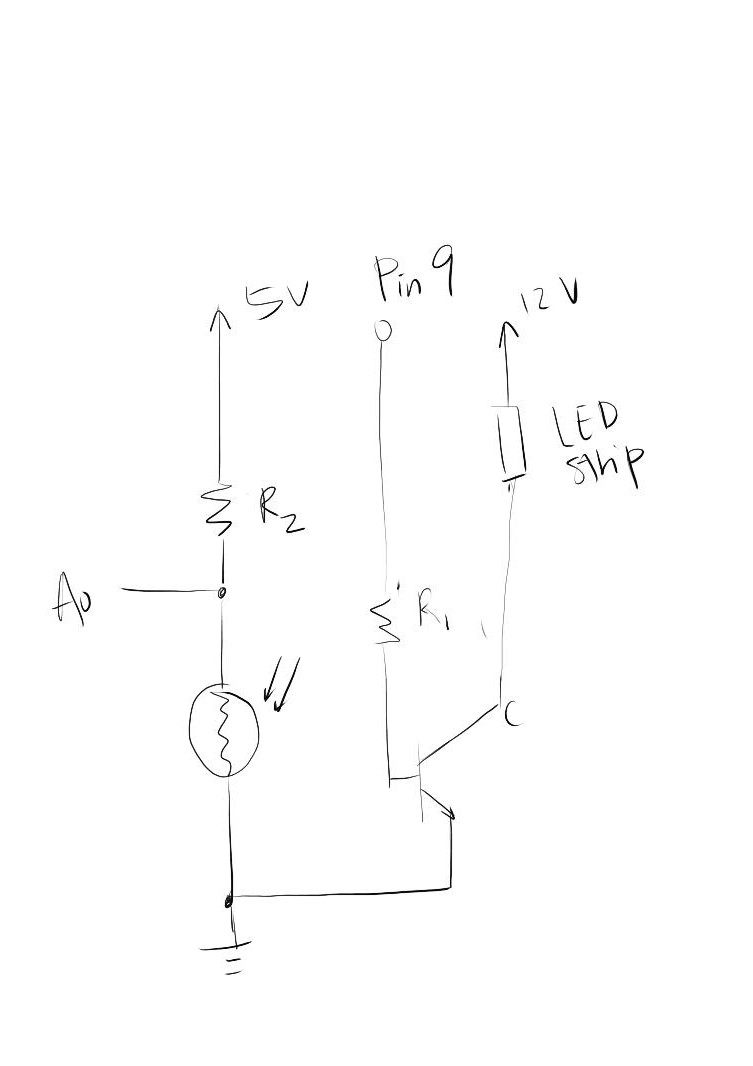 Pin 9
5V
12V
LED
strip
R2
A0
R1
C